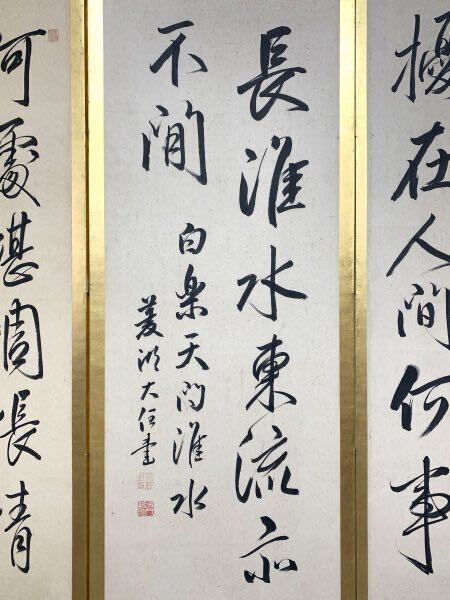 擾在人間何事
長淮水東流亦
不閒
白樂天問淮水
菱湖大任書
何處堪惆悵情